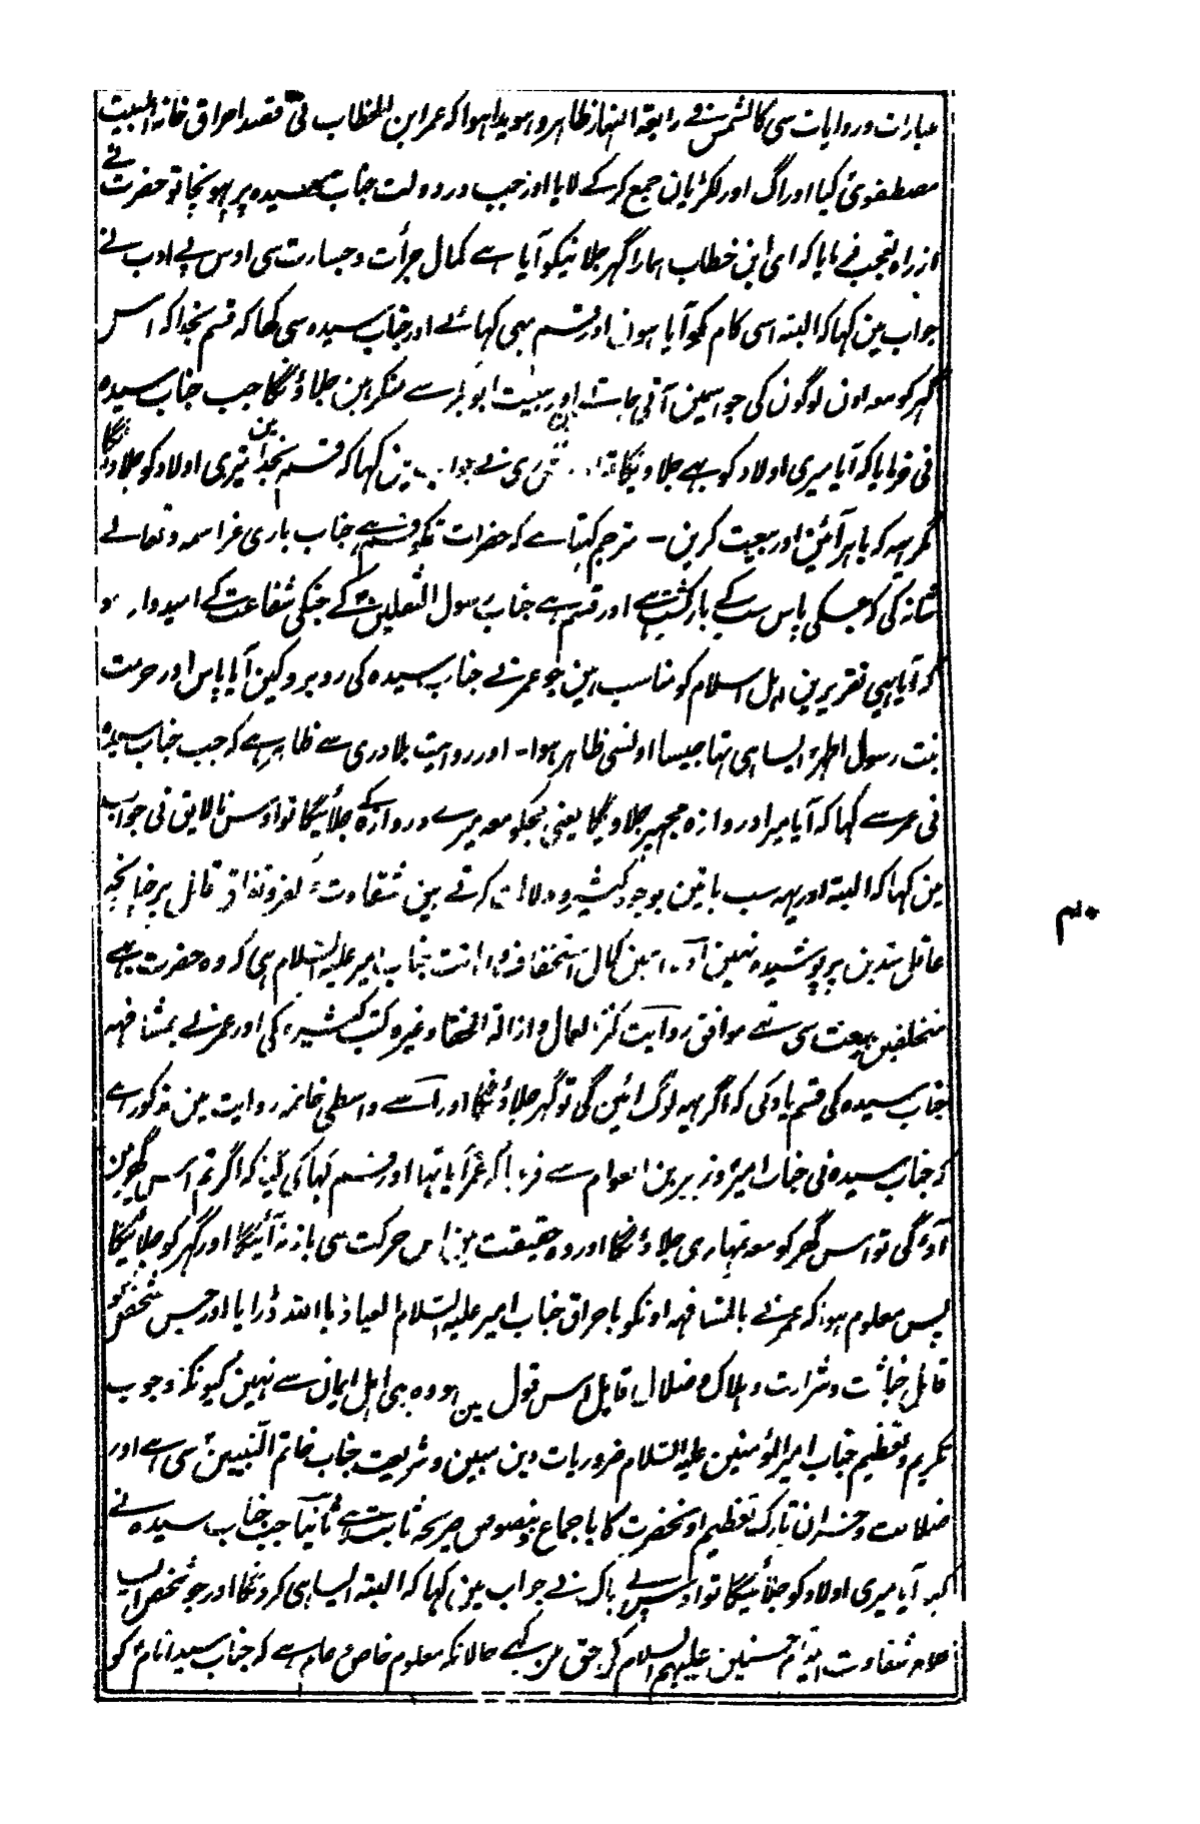 عبارات و روایات سی کالشمس فی رابعة النهار ظاہر و ہویدا ہوا کہ عمر ابن الخطاب نی قصد احراق خانہ اہلبیت
مصطفوی کیا اور آگ اور لکڑیان جمع کر کے لایا اور جب در دولت جناب سیدہ پر پہونچا تو حضرت نے
از راہ تعجب فرمایا کہ ای ابن خطاب ہمارا گہر جلانیکو آیا ہے کمال جرأت و جسارت سی اوس بے ادب نے
جواب مین کہا کہ البتہ اسی کام کو آیا ہون اور قسم بہی کہائے اور جناب سیدہ سی کہا کہ قسم بخدا کہ اس
گہر کو معہ اون لوگون کی جو اسمین آتی جاتے اور بیعت ابوبکر سے منکر ہین جلاؤنگا جب جناب سیدہ
نی فرمایا کہ آیا میری اولاد کو بہے جلاویگا تو نے جواب مین کہا کہ قسم بخدا مین تیری اولاد کو جلاونگا
مگر یہہ کہ باہر آئین اور بیعت کرین - مترجم کہتا ہے کہ حضرات تمکو قسم ہے جناب باری عز اسمہ و تعالے
شانہ کی کہ جسکی پاس سب کے بازگشت ہے اور قسم ہے جناب رسول الثقلین کے جنکی شفاعت کے امیدوار ہو
کہ آیا یہی تقریرین اہل اسلام کو مناسب ہین جو عمر نے جناب سیدہ کی روبرو کین آیا پاس اور حرمت
بنت رسول اطہر ایسا ہی تہا جیسا اونسی ظاہر ہوا - اور روایت بلادری سے ظاہر ہے کہ جب جناب سیدہ
نی عمر سے کہا کہ آیا میرا دروازہ مجہپر جلاویگا یعنی مجکو معہ میرے دروازہ کے جلائیگا تو اوس نالایق نی جواب
مین کہا کہ البتہ اور یہہ سب باتین بوجوہ کثیرہ دلالت کرتے ہین شقاوت و کفر و نفاق قائل پر چنانچہ
عاقل متدین پر پوشیدہ نہین اول اسمین کمال استخفاف و اہانت جناب امیر علیہ السلام ہی کہ وہ حضرت بہے
متخلفین بیعت سی تہے موافق روایت کنز العمال و ازالة الخفا وغیرہ کتب کثیرہ کی اور عمر نے بمشافہہ
جناب سیدہ کی قسم یاد کی کہ اگر یہہ لوگ ائین گی تو گہر جلاؤنگا اور اسے واسطی خاتمہ روایت مین مذکور ہے
کہ جناب سیدہ نی جناب امیر و زبیر بن العوام سے فرمایا کہ عمر آیا تہا اور قسم کہا کی گیا کہ اگر تم اس گہر مین
آؤ گی تو اس گہر کو معہ تمہاری جلاؤنگا اور وہ حقیقت مین اس حرکت سی باز نہ آئیگا اور گہر کو جلائیگا
پس معلوم ہوا کہ عمر نے بالمشافہہ اونکو باحراق جناب امیر علیہ السلام العیاذ باللہ ڈرایا اور جس شخص کو
تامل خباثت و شرارت و ہلاک و ضلال قایل اس قول مین ہو وہ بہی اہل ایمان سے نہین کیونکہ وجوب
تکریم و تعظیم جناب امیر المؤمنین علیہ السلام ضروریات دین مبین و شریعت جناب خاتم النبیین سی ہے اور
ضلالت و خسران تارک تعظیم اونحضرت کا باجماع و نصوص صریحہ ثابت ہے ثانیاً جب جناب سیدہ نے
کہا آیا میری اولاد کو جلائیگا تو اوس بے باک نے جواب مین کہا کہ البتہ ایسا ہی کرونگا اور جو شخص ایسے
کلمہ شقاوت حسنین علیہم السلام کی حق مین کہے حالانکہ معلوم خاص و عام ہے کہ جناب سید انام کو
۴۰